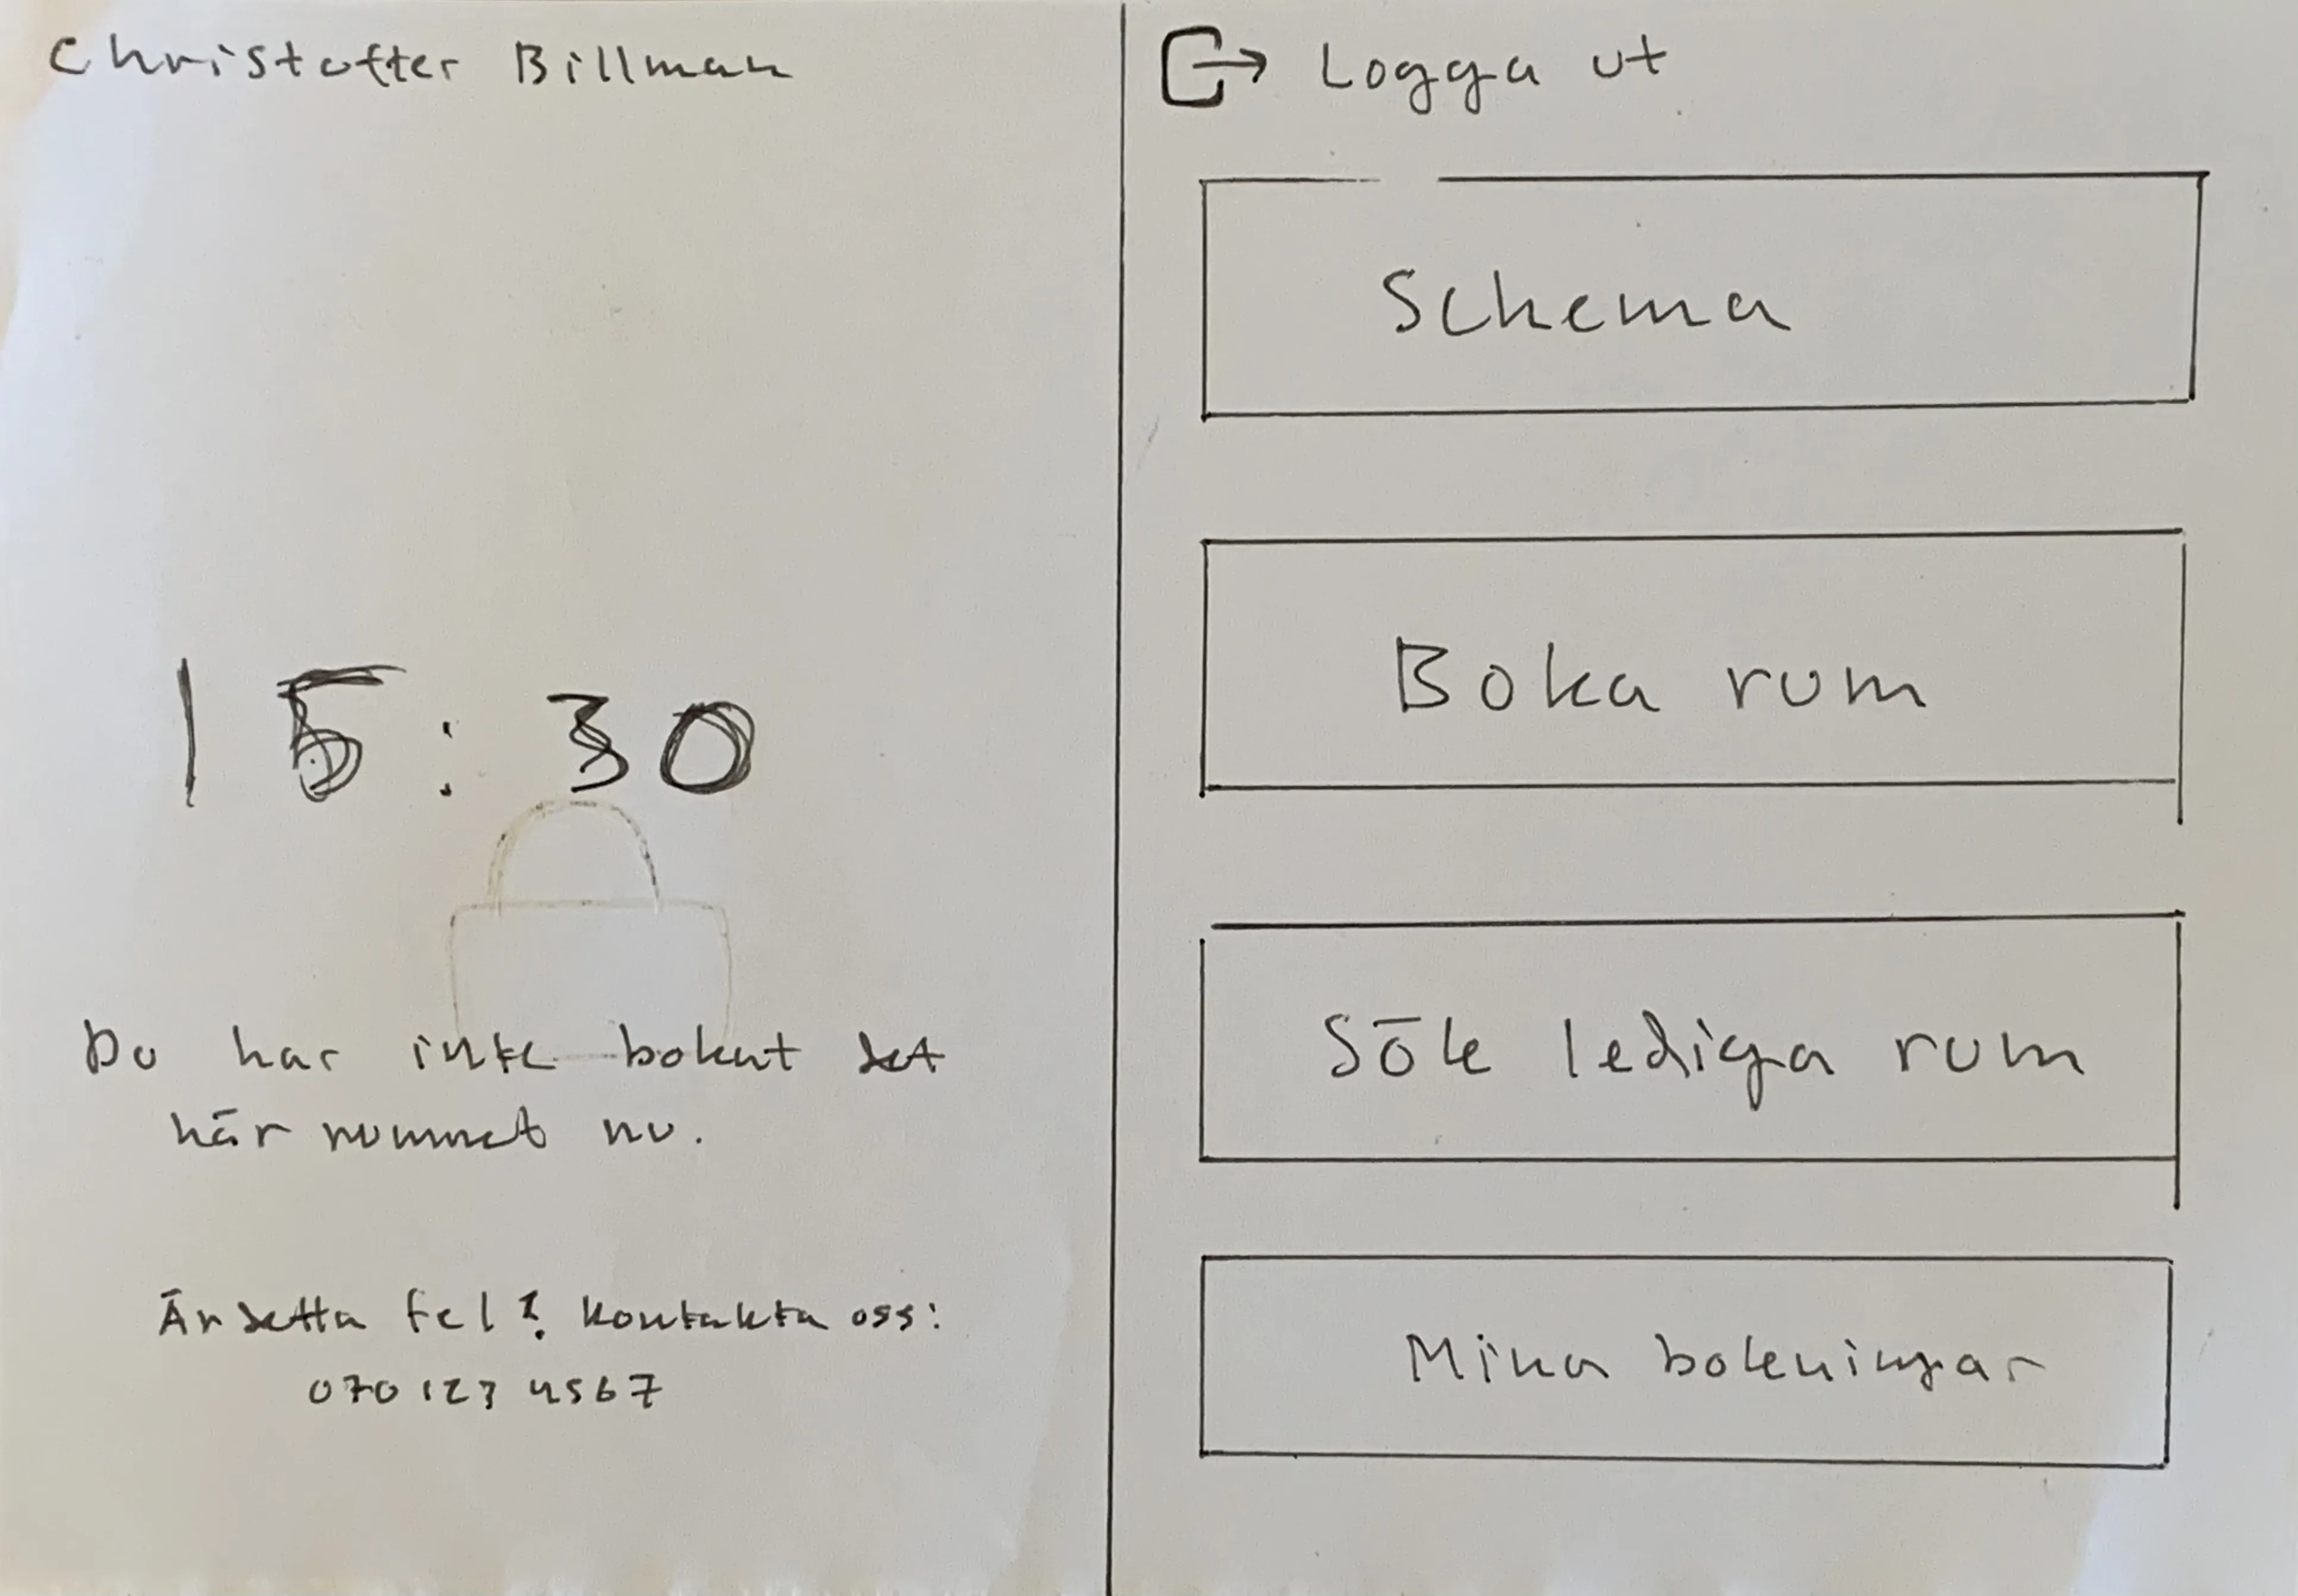 Christoffer Billman
15:30
Du har inte bokat det
här rummet nu.
Är detta fel? Kontakta oss:
070 123 4567
Logga ut
Schema
Boka rum
Sök lediga rum
Mina bokningar